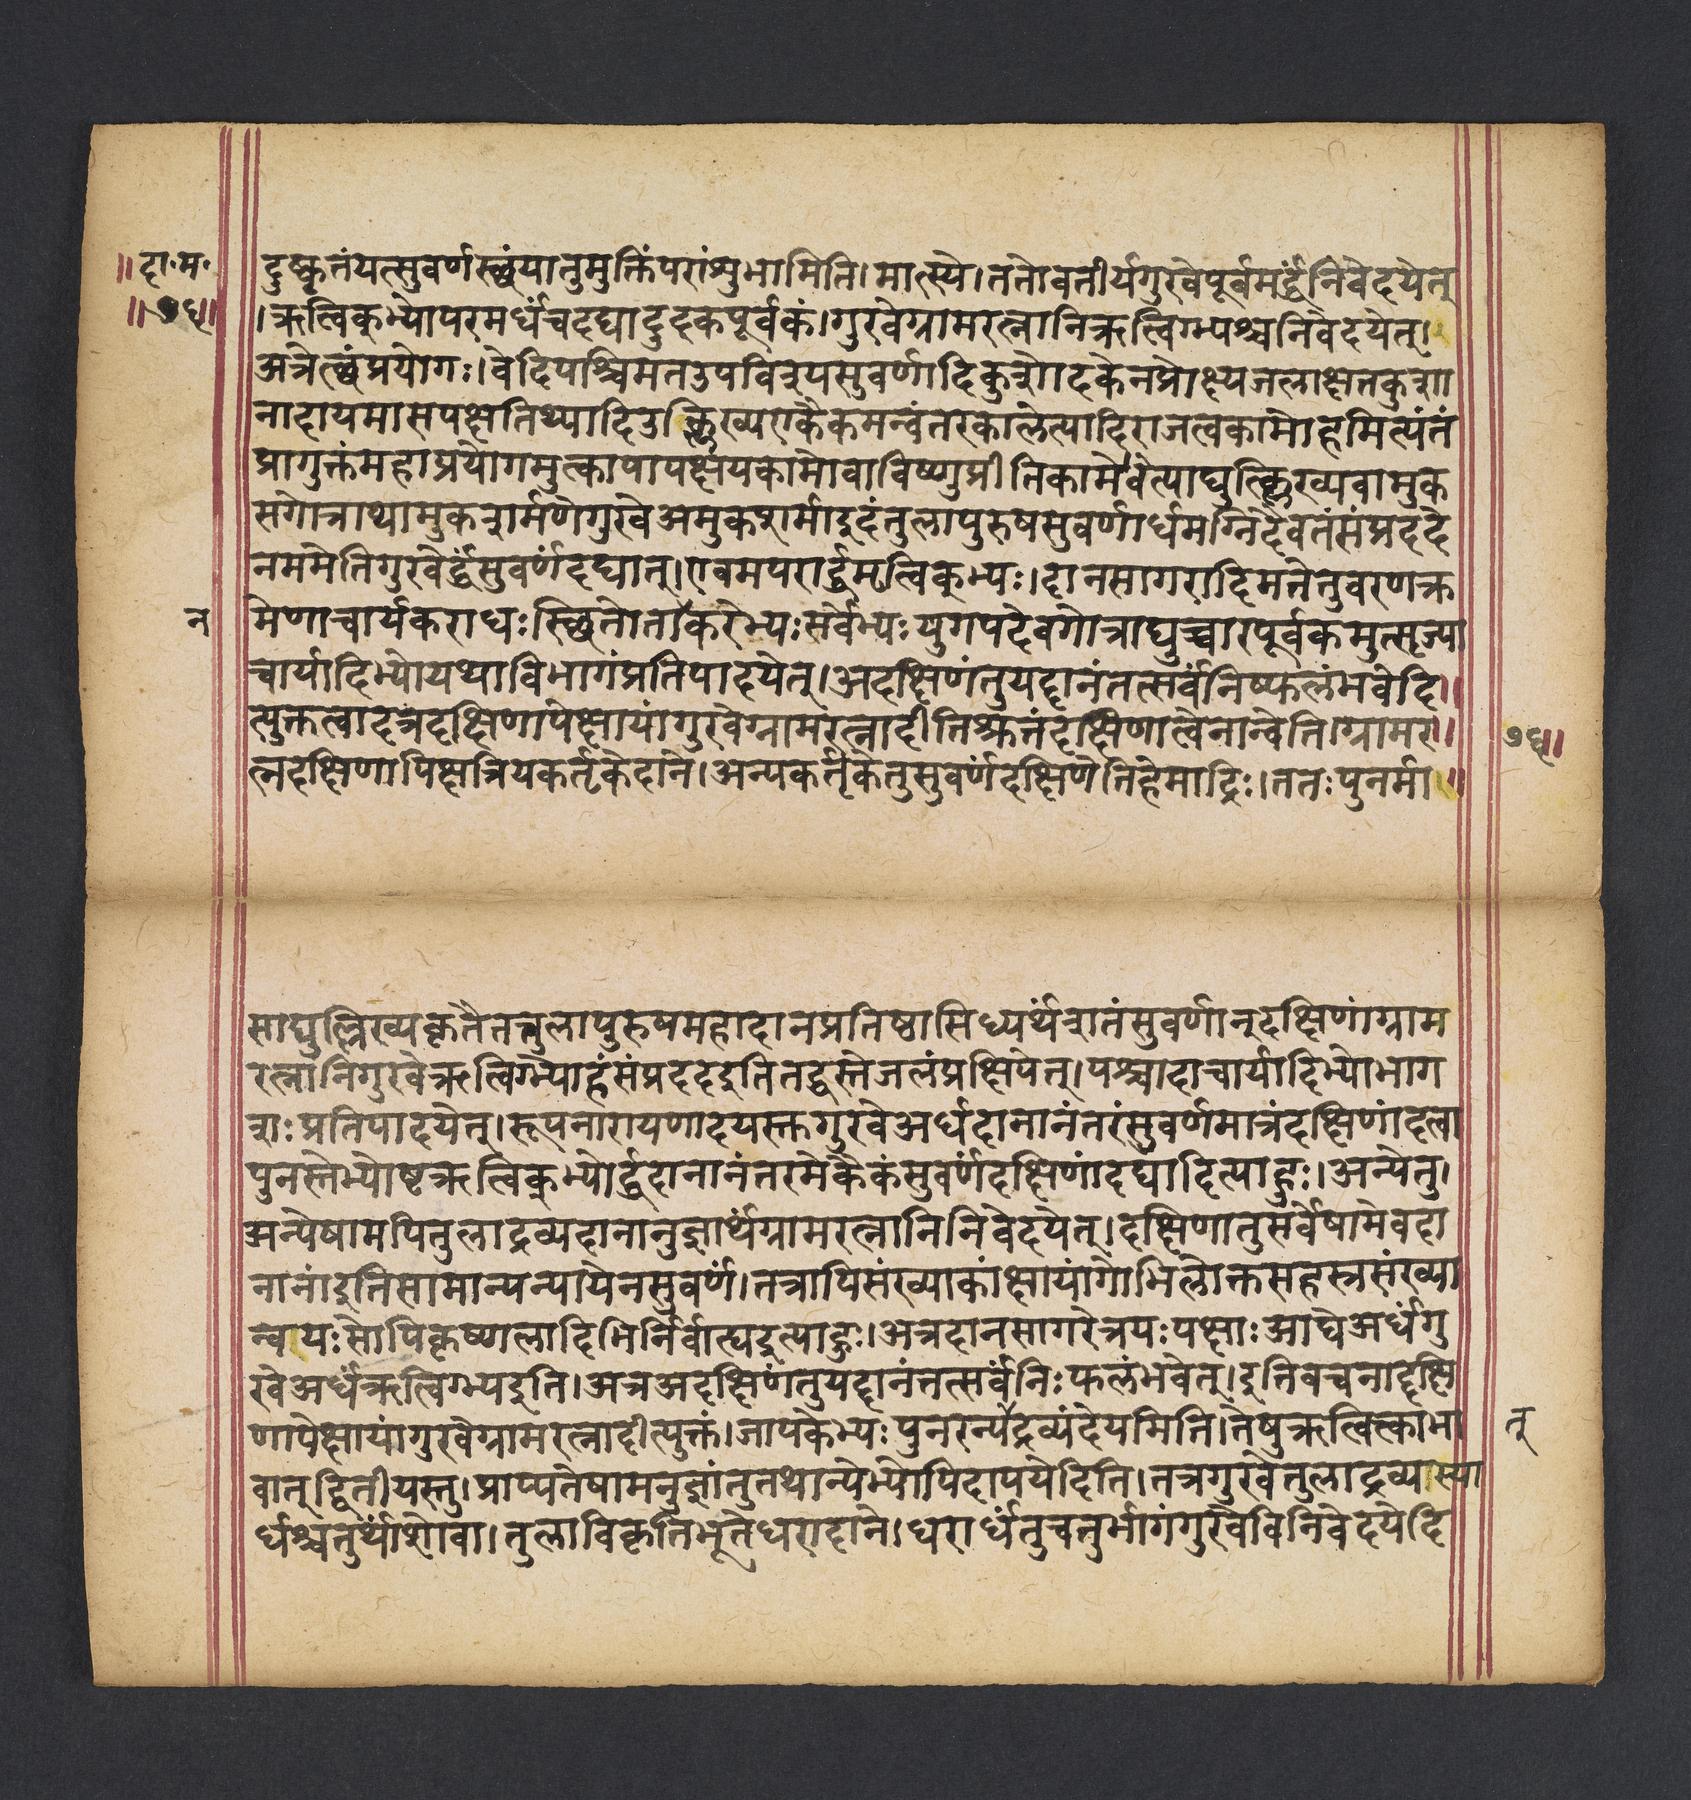 ॥दा॰म॰
॥७६॥
दुष्कृतंयत्सुवर्णस्त्छंयातुमुक्तिंपरांशुभामिति।मात्स्ये।ततोवतीर्यगुरवेपूर्वमर्द्धंनिवेदयेत्
।ऋत्विक्भ्योपरमर्धंचदद्यादुदकपूर्वकं।गुरवेग्रामरत्नानिऋत्विग्भ्यश्चनिवेदयेत्।
अत्रेत्छंप्रयोगः।वेदिपश्चिमतउपविश्यसुवर्णादिकुशोदकेनप्रोक्ष्यजलाक्षतकुशा
नादायमासपक्षतिथ्यादिउल्लिख्यएकैकमन्वंतरकालेत्यादिराजत्वकामोहमित्यंतं
प्रागुक्तंमहाप्रयोगमुत्कापापक्षयकामोवाविष्णुप्रीतिकामोवेत्याद्युल्लिख्यवामुक
सगोत्रायामुकशर्मणेगुरवेअमुकशर्माइदंतुलापुरुषसुवर्णार्धमग्निदैवतंसंप्रददे
नममेतिगुरवेर्द्धंसुवर्णंदद्यात्।एवमपरार्द्धमृत्विक्भ्यः।दानसागरादिमतेतुवरणक्र
न
मेणाचार्यकराधःस्छितोताकरेभ्यःसर्वेभ्यःयुगपदेवगोत्राद्युच्चारपूर्वकमुत्सृज्या
चार्यादिभ्योयथाविभागंप्रतिपादयेत्।अदक्षिणंतुयद्दानंतत्सर्वंनिष्फलंभवेदि॥
त्युक्तत्वादत्रदक्षिणापेक्षायांगुरवेग्रामरत्नादीतिश्रुतंदक्षिणात्वेनान्वेति।ग्रामर॥
७६॥
त्नदक्षिणापिक्षत्रियकर्तृकेदाने।अन्यकर्तृकेतुसुवर्णंदक्षिणेतिहेमाद्रिः।ततःपुनर्मा॥
साद्युल्लिख्यकृतैतत्तुलापुरुषमहादानप्रतिष्ठासिध्यर्थंशतंसुवर्णान्दक्षिणांग्राम
रत्नानिगुरवेऋत्विग्भ्योहंसंप्रददइतितद्धस्तेजलंप्रक्षिपेत्।पश्चादाचार्यादिभ्योभाग
शःप्रतिपादयेत्।रूपनारायणादयस्क्तगुरवेअर्धदानानंतरंसुवर्णमात्रंदक्षिणांदत्वा
पुनस्तेभ्योष्टऋत्विक्भ्योर्द्धदानानंतरमेकैकंसुवर्णंदक्षिणांदद्यादित्याहुः।अन्येतु।
अन्येषामपितुलाद्रव्यदानानुज्ञार्थंग्रामरत्नानिनिवेदयेत्।दक्षिणातुसर्वेषामेवदा
नानांइतिसामान्यन्यायेनसुवर्णं।तत्रापिसंख्याकांक्षायांगोभिलोक्तसहस्त्रसंख्या
न्वयःसोपिकृष्णलादिभिर्निर्वात्यइत्याहुः।अत्रदानसागरेत्रयःपक्षाःआद्येअर्धंगु
रवेअर्धंऋत्विग्भ्यइति।अत्रअदक्षिणंतुयद्दानंतत्सर्वंनिःफलंभवेत्।इतिवचनाद्दक्षि
णापेक्षायांगुरवेग्रामरत्नादीत्युक्तं।जापकेभ्यःपुनरन्येद्रव्यंदेयमिति।तेषुऋत्वित्काभा
त्
वात्द्वितीयस्तु।प्राप्यतेषामनुज्ञांतुतथान्येभ्योपिदापयेदिति।तत्रगुरवेतुलाद्रव्यास्या
र्धश्चतुर्थांशोवा।तुलाविकृतिभूतेधरादाने।धरार्धंतुचतुर्भागंगुरवेविनिवेदयेदि